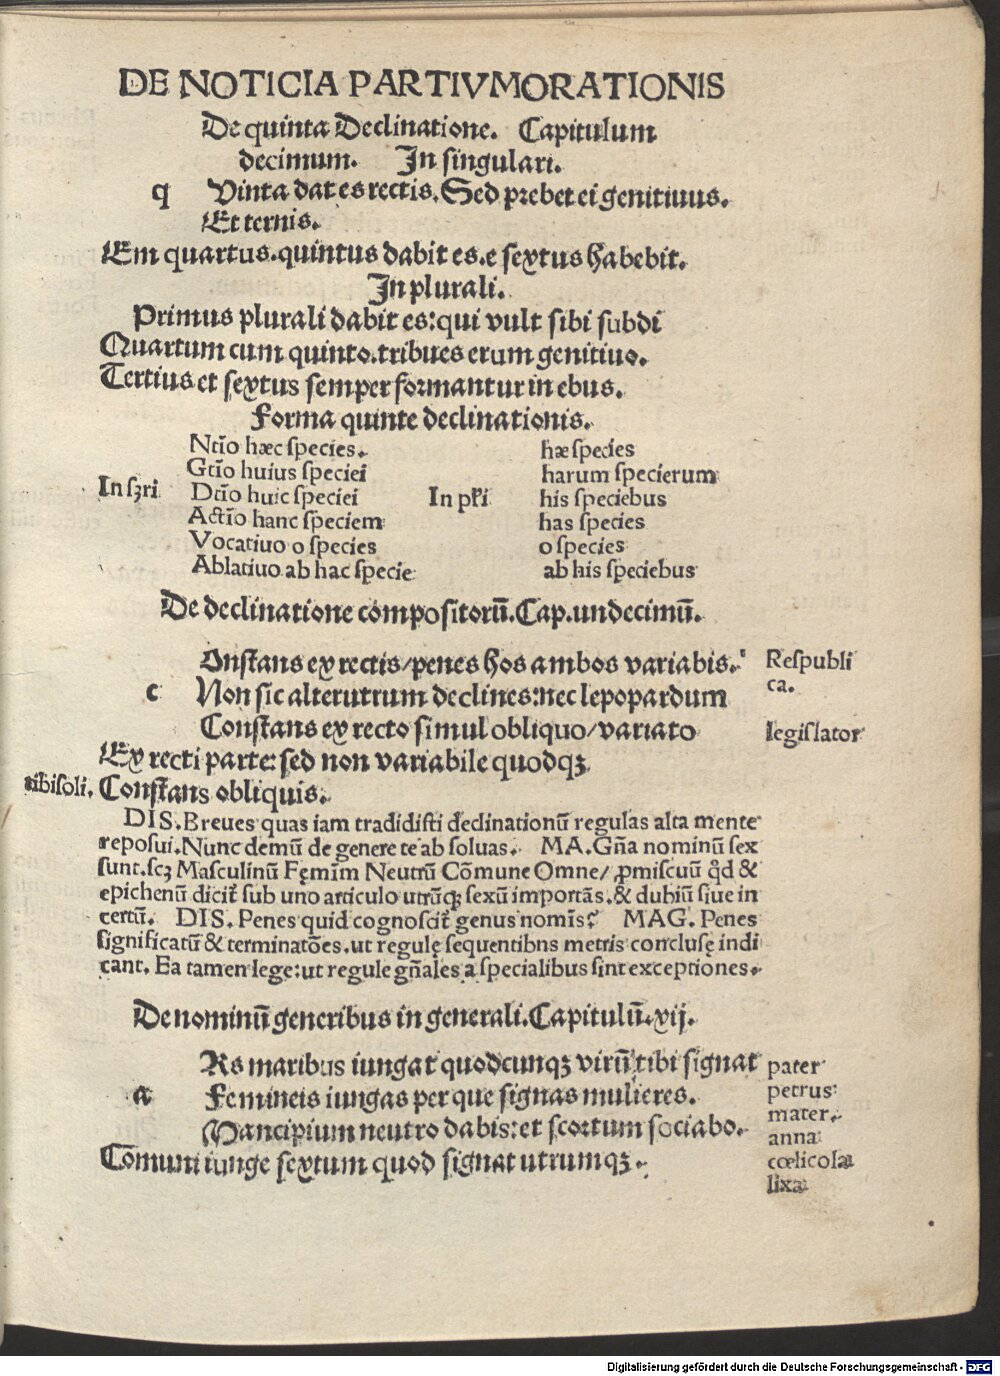 DE NOTICIA PARTIVM ORATIONIS
De quinta Declinatione. Capitulum
decimum. In singulari.
q Vinta dat es rectis. Sed prebet ei genitiuus.
Et ternis.
Em quartus. quintus dabit es. e sextus habebit.
In plurali.
Primus plurali dabit es: qui vult sibi subdi
Quartum cum quinto. tribues erum genitiuo.
Tertius et sextus semper formantur in ebus.
Forma quinte declinationis.
Ntĩo hæc species. hæ species
Gtĩo huius speciei harum specierum
In sꝫri Dtĩo huic speciei In pľi his speciebus
Actĩo hanc speciem has species
Vocatiuo o species o species
Ablatiuo ab hac specie ab his speciebus
De declinatione compositorũ. Cap. undecimũ.
Onstans ex rectis/penes hos ambos variabis. Respubli
ca.
c Non sic alterutrum declines: nec lepopardum
Constans ex recto simul obliquo/variato legislator
Ex recti parte: sed non variabile quodqꝫ
tibisoli. Constans obliquis.
DIS. Breues quas iam tradidisti declinationũ regulas alta mente
reposui. Nunc demũ de genere te ab soluas. MA. Gña nominũ sex
sunt. scꝫ Masculinũ Fęmĩm Neutrũ Cõmune Omne/ ꝓmiscuũ qd̃ &
epichenũ dicit̃ sub uno articulo utrũqꝫ sexũ importãs. & dubiũ siue in
certũ. DIS. Penes quid cognoscit̃ genus nomĩs? MAG. Penes
significatũ & terminatões. ut regulę sequentibns metris conclusę indi
cant. Ea tamen lege: ut regule gñales a specialibus sint exceptiones.
De nominũ generibus in generali. Capitulũ. xij.
Rs maribus iungat quodcunqꝫ virũ tibi signat pater
a Femineis iungas per que signas mulieres. petrus
mater.
Mancipium neutro dabis: et scortum sociabo. anna
Cõmuni iunge sextum quod signat utrumqꝫ. cœlicola
lixa
Digitalisierung gefördert durch die Deutsche Forschungsgemeinschaft - DFG